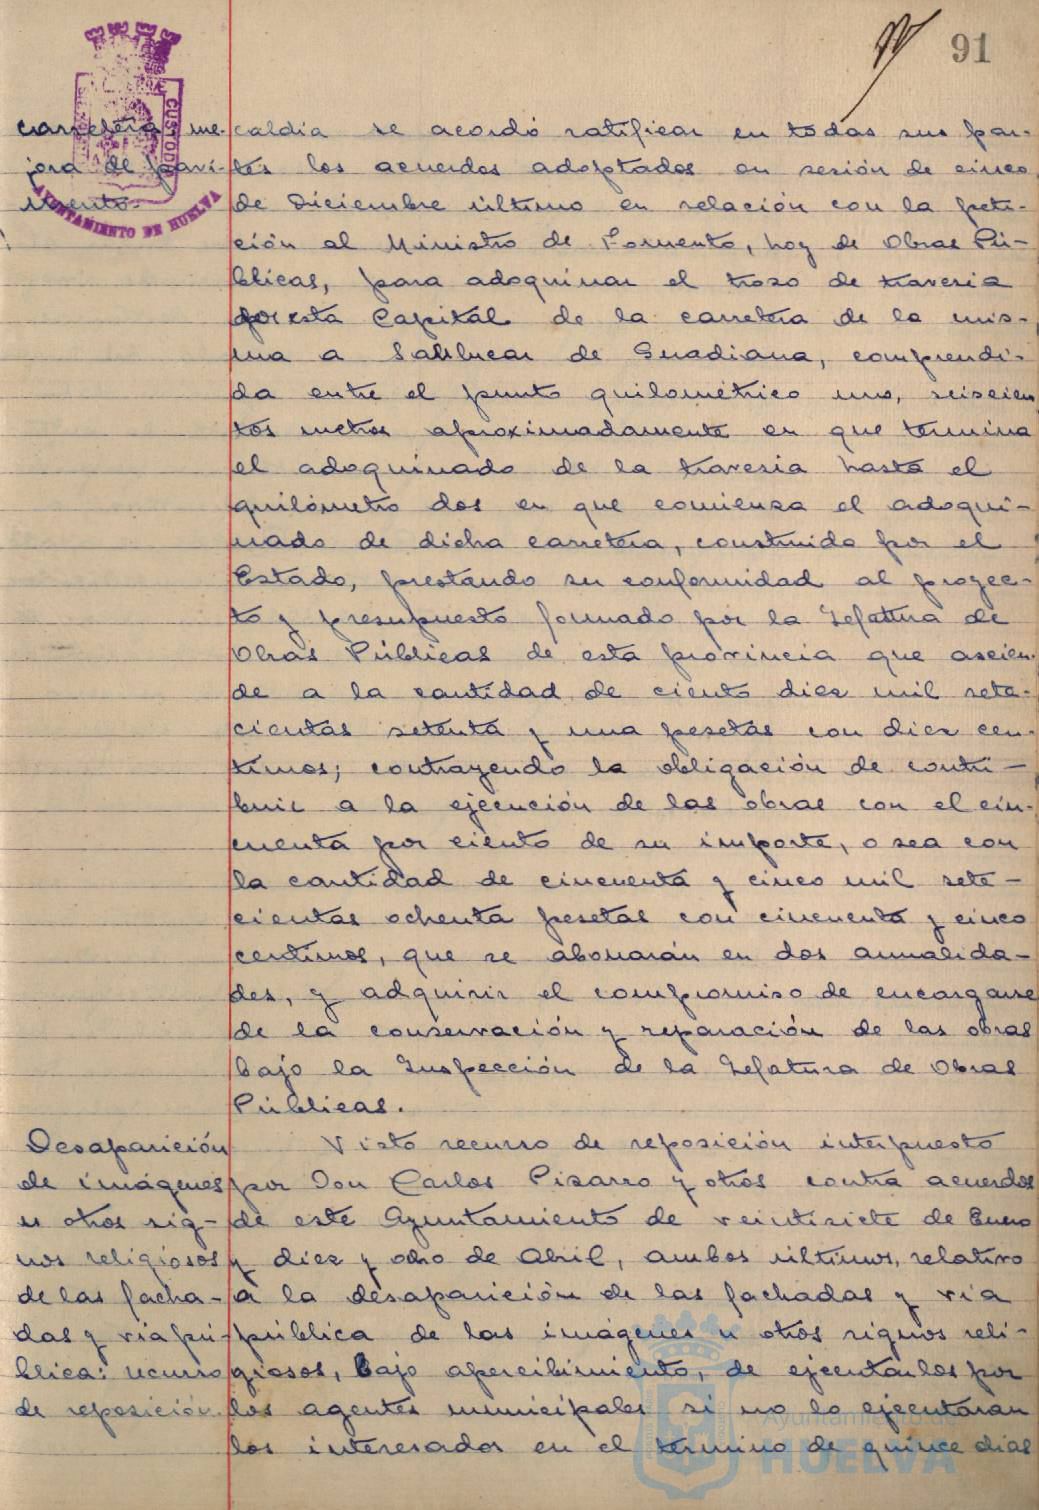 91
CUSTODI
AYUNTAMIENTO DE HUELVA
carretera, me-
jora de pavi-
mento.
caldía se acordó ratificar en todas sus par-
tes los acuerdos adoptados en sesión de cinco
de Diciembre último en relación con la peti-
ción al Ministro de Fomento, hoy de Obras Pú-
blicas, para adoquinar el trozo de travesía
por esta Capital de la carretera de la mis-
ma a Sanlucar de Guadiana, comprendi-
da entre el punto quilométrico uno, seiscien
tos metros aproximadamente en que termina
el adoquinado de la travesia hasta el
quilómetro dos en que comienza el adoqui-
nado de dicha carretera, construido por el
Estado, prestando su conformidad al proyec-
to y presupuesto formado por la Jefatura de
Obras Públicas de esta provincia que ascien-
de a la cantidad de ciento diez mil sete-
cientas setenta y una pesetas con diez cen-
timos; contrayendo la obligación de contri-
buir a la ejecución de las obras con el cin-
cuenta por ciento de su importe, o sea con
la cantidad de cincuenta y cinco mil sete-
cientas ochenta pesetas con cincuenta y cinco
centimos, que se abonarán en dos anualida-
des, y adquirir el compromiso de encargarse
de la conservación y reparación de las obras
bajo la Inspección de la Jefatura de Obras
Públicas.
Desaparición
de imágenes
u otros sig-
nos religiosos
de las facha-
das y via pú-
blica: recurso
de reposición.
Visto recurso de reposición interpuesto
por Don Carlos Pizarro y otros contra acuerdos
de este Ayuntamiento de veintisiete de Enero
y diez y ocho de Abril, ambos últimos, relativo
a la desaparición de las fachadas y vía
pública de las imágenes u otros signos reli-
giosos, bajo apercibimiento, de ejecutarlos por
los agentes municipales si no lo ejecutaran
los interesados en el término de quince dias
Ayuntamiento de
HUELVA